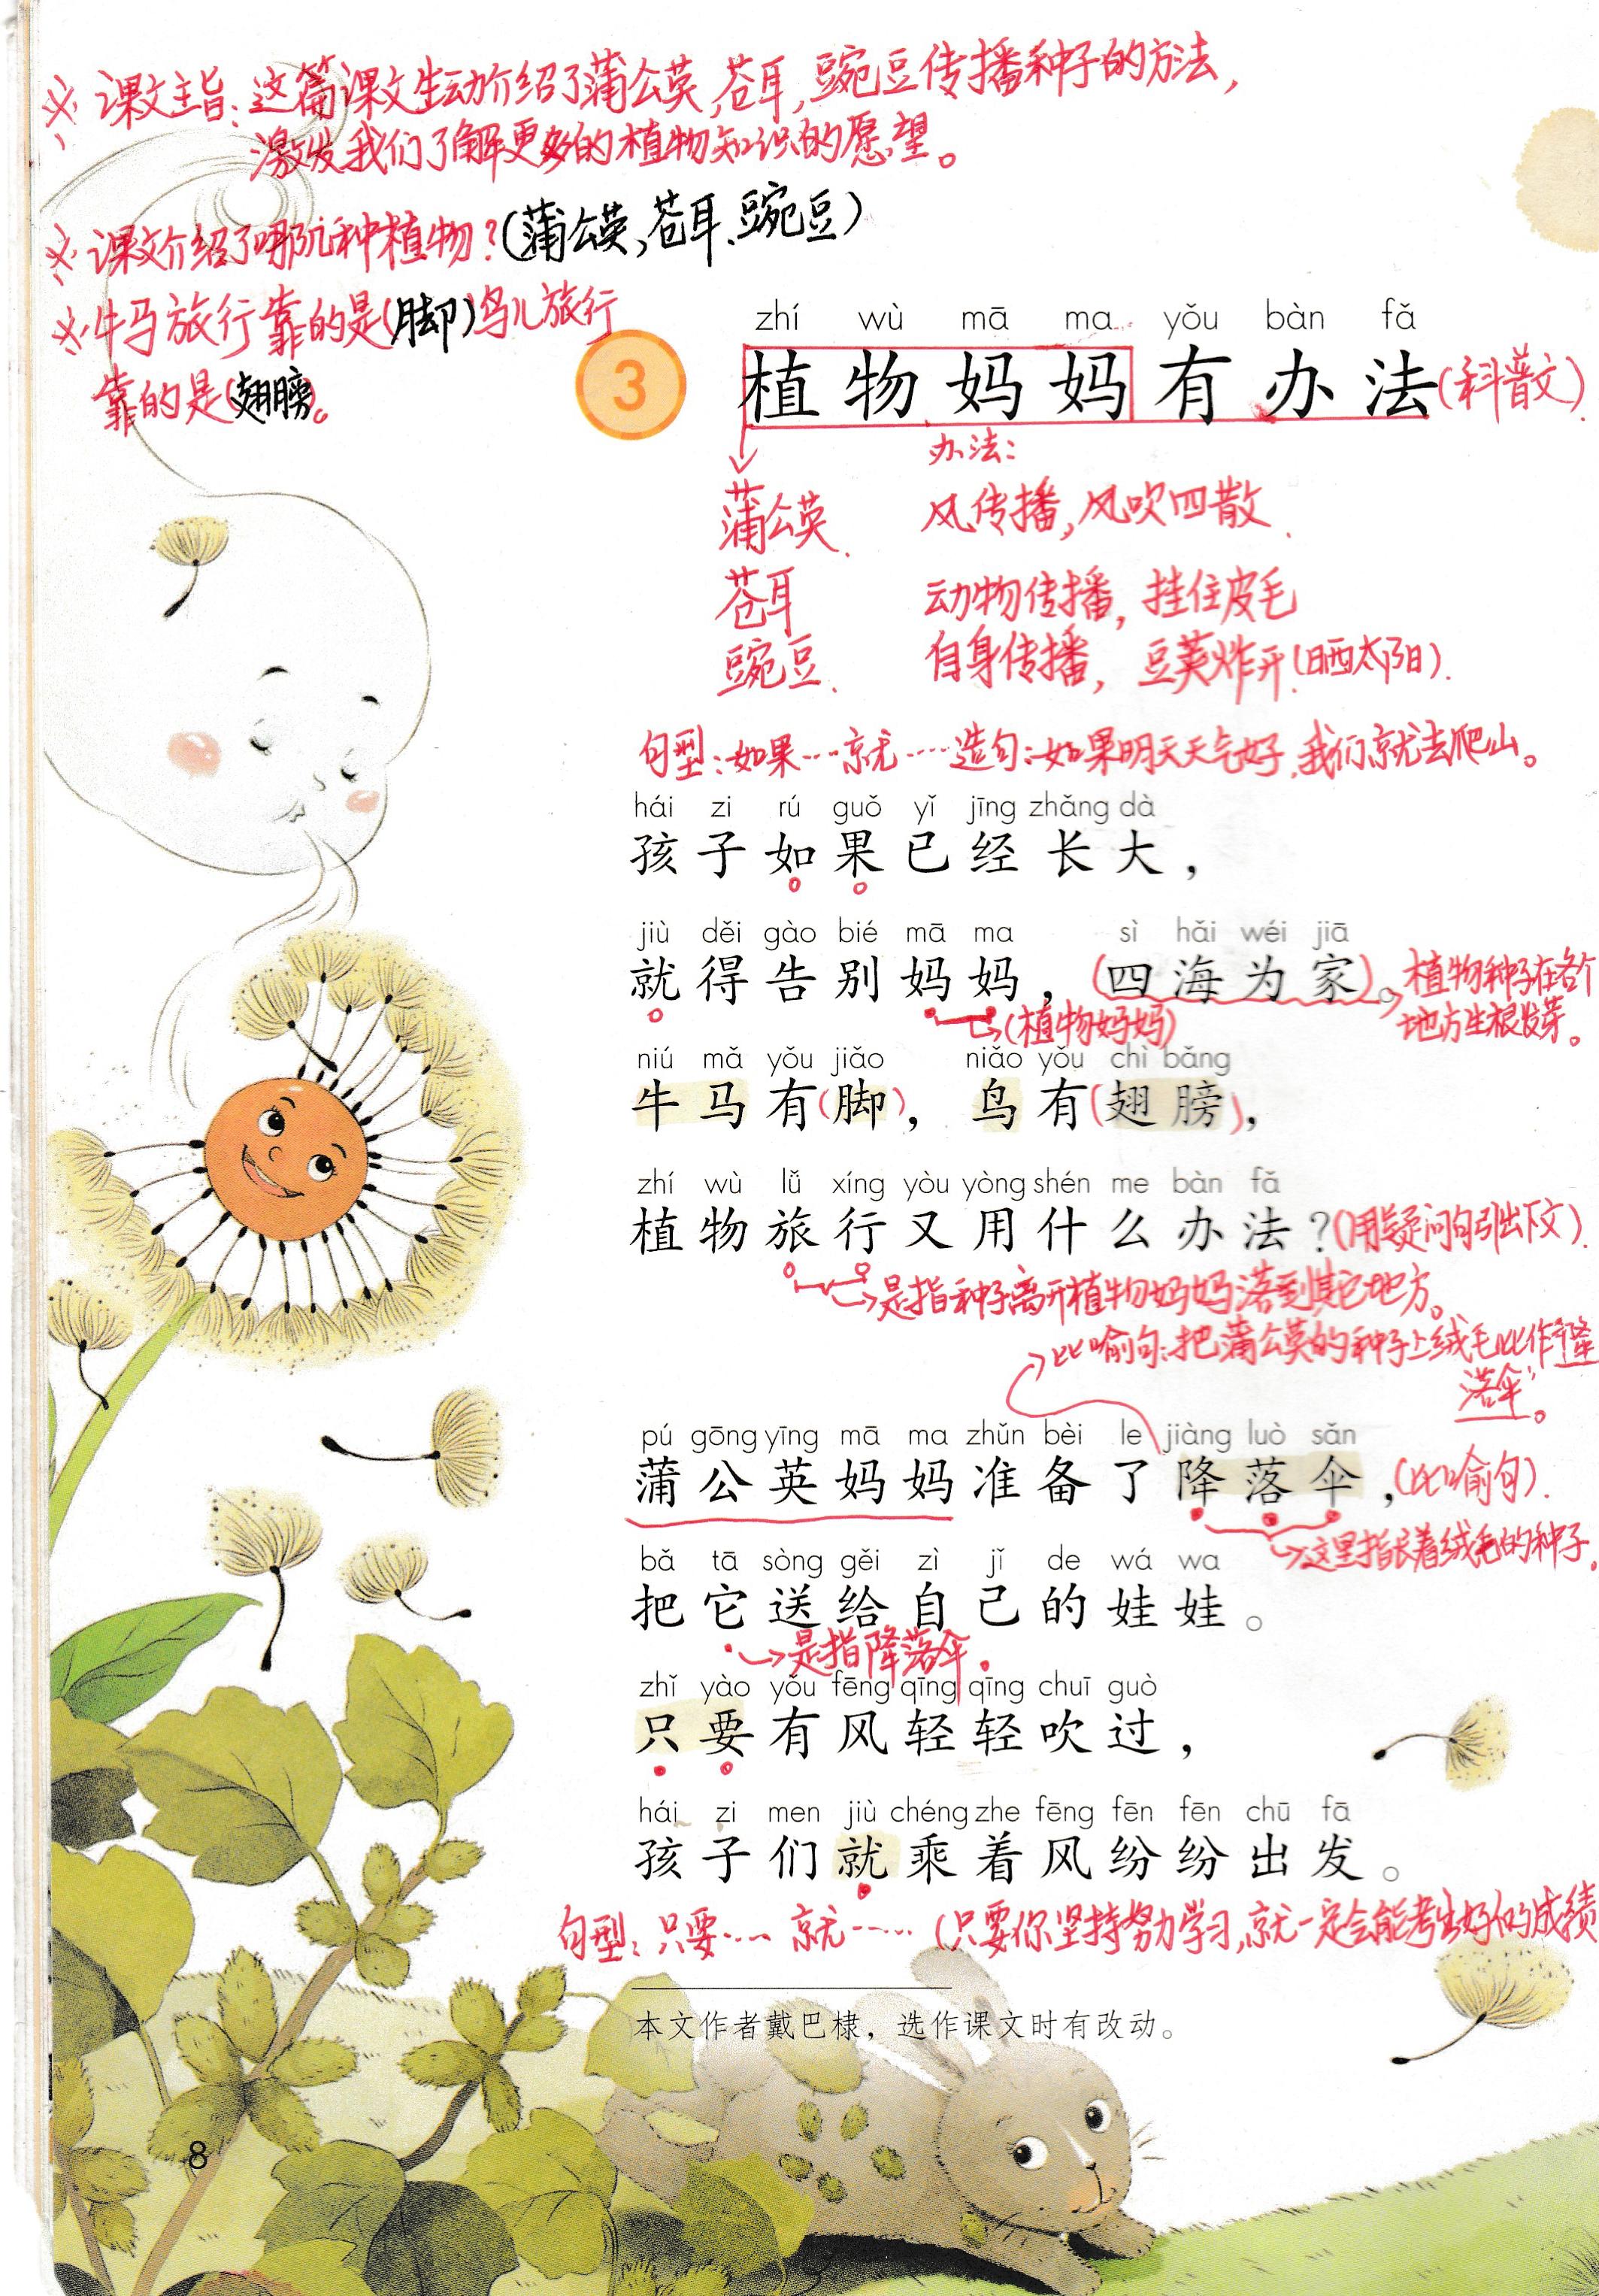 ※ 课文主旨：这篇课文生动介绍了蒲公英，苍耳，豌豆传播种子的方法，
激发我们了解更多的植物知识的愿望。
※ 课文介绍了哪几种植物？（蒲公英，苍耳、豌豆）
※ 牛马旅行靠的是（脚）鸟儿旅行
靠的是（翅膀）。
zhí wù mā ma yǒu bàn fǎ
3 植物妈妈有办法（科普文）
办法：
蒲公英 风传播，风吹四散
苍耳 动物传播，挂住皮毛
豌豆 自身传播，豆荚炸开（晒太阳）
句型：如果……就……造句：如果明天天气好，我们就去爬山。
hái zi rú guǒ yǐ jīng zhǎng dà
孩子如果已经长大，
jiù děi gào bié mā ma sì hǎi wéi jiā
就得告别妈妈，（四海为家）。植物种子在各个
地方生根发芽。
（植物妈妈）
niú mǎ yǒu jiǎo niǎo yǒu chì bǎng
牛马有（脚），鸟有（翅膀），
zhí wù lǚ xíng yòu yòng shén me bàn fǎ
植物旅行又用什么办法？（用疑问句引出下文）
是指种子离开植物妈妈落到其它地方。
比喻句：把蒲公英的种子上绒毛比作“降
落伞”。
pú gōng yīng mā ma zhǔn bèi le jiàng luò sǎn
蒲公英妈妈准备了降落伞，（比喻句）
这里指长着绒毛的种子。
bǎ tā sòng gěi zì jǐ de wá wa
把它送给自己的娃娃。
是指降落伞。
zhǐ yào yǒu fēng qīng qīng chuī guò
只要有风轻轻吹过，
hái zi men jiù chéng zhe fēng fēn fēn chū fā
孩子们就乘着风纷纷出发。
句型：只要…… 就……（只要你坚持努力学习，就一定会能考出好的成绩
本文作者戴巴棣，选作课文时有改动。
8